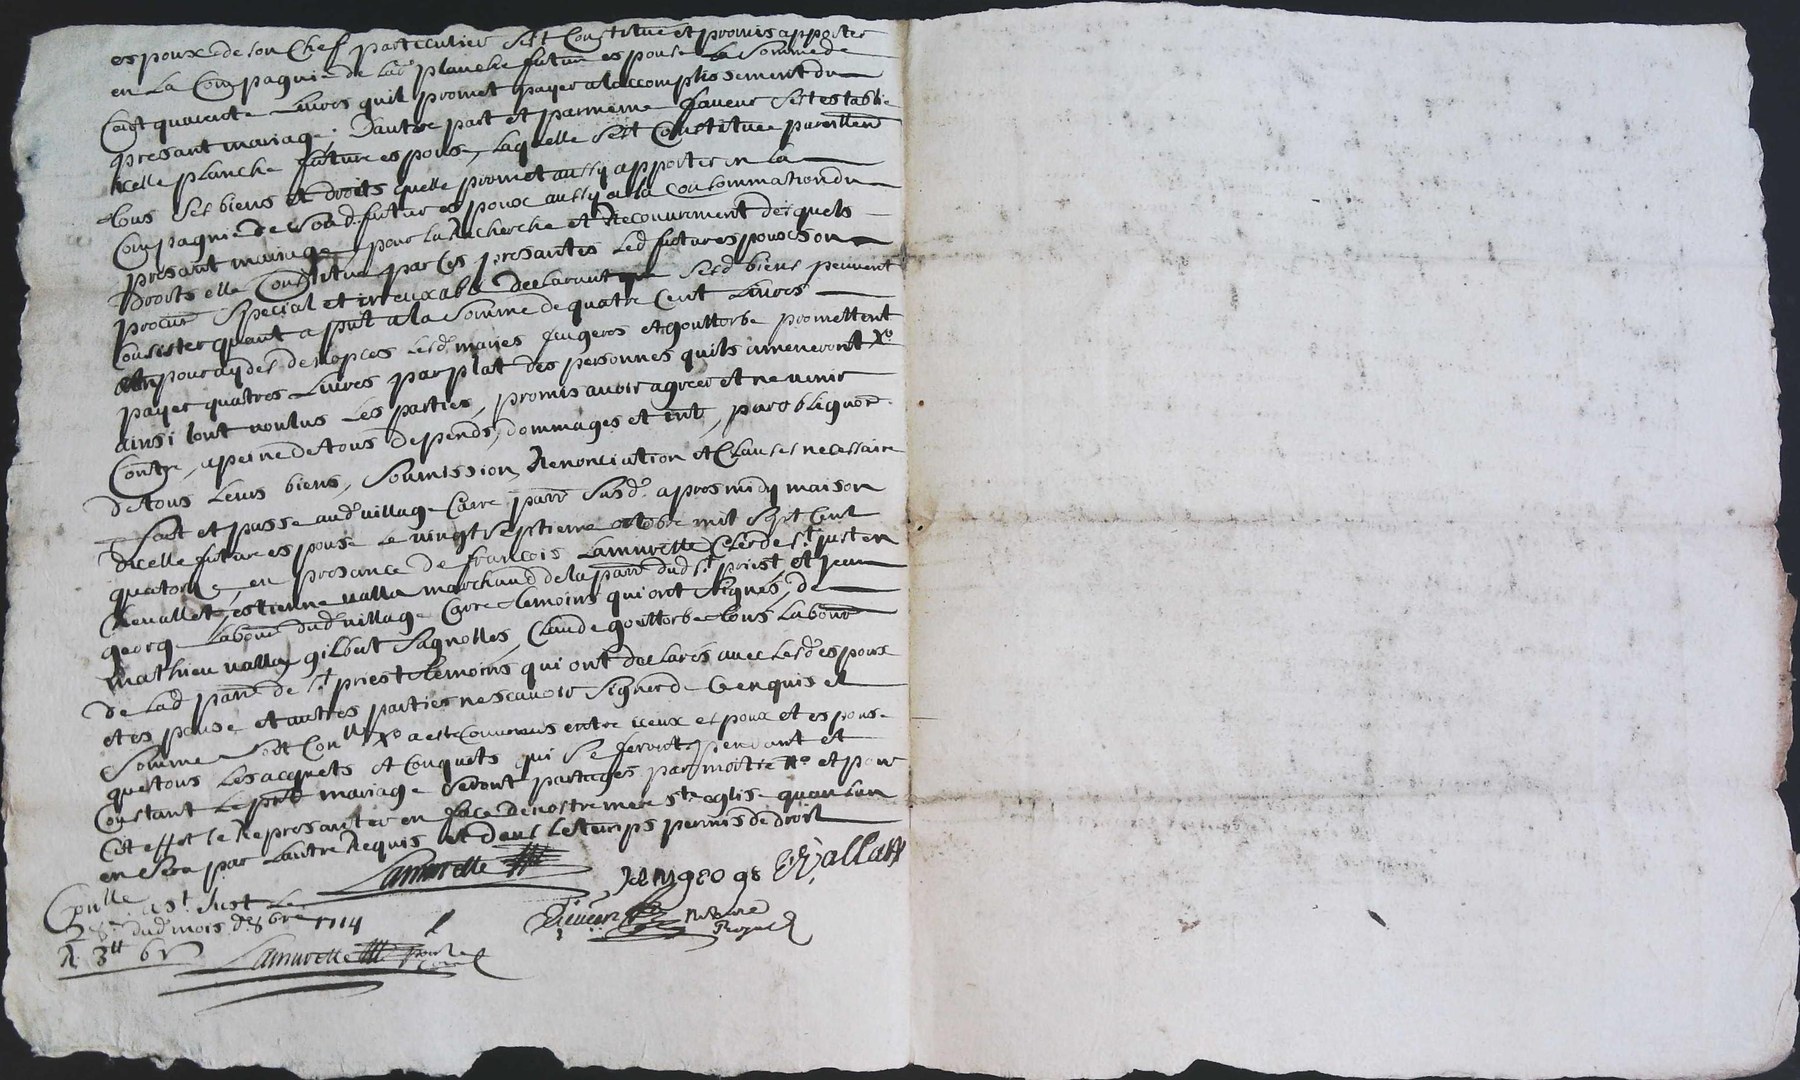 espoux de son Chef particulier s'est Constitue et promis apporter
en La Compagnie de lad. planche future espouse La Somme de
Cent quarente Livres quil promet payer a laccomplissement du
presant mariage. D'autre part et par meme faveur s'est establie
icelle planche future espouse, laquelle s'est Constituee pareillemt
tous ses biens et droits quelle promet aussy apporter en La
Compagnie de Sond. futur espoux aussy a la Consommation du
presant mariage, pour La Recherche et Recouvrement desquels
Droits elle Constitue par Ces presantes Led. futur espoux son
procur Special et irrevocable Declarant que sesd. biens peuvent
Consister quant a pnt a la Somme de quatre Cent Livres
et pour aydes de nopces Lesd. maries feugeros et gouttorbe promettent
payer quatres Livres par plat des personnes quils ameneront Xo
ainsi Lont voulus Les parties, promis avoir agreer et ne venir
Contre, a peine de tous depends, dommages et int, par obligaon
de tous Leurs biens, Soumission, Renonciation et Clauses necessaire
fait et passe aud. village Carre parr susd. apres midy maison
dicelle future espouse Le vingt septieme octobre mil sept Cent
quatorze, en presance de françois Lamurette Clerc de st just en
Chevallet, estienne valla marchand de la parr dud st priest, et Jean
georg Labour dud. village Carre temoins qui ont Signés, de
mathieu valla, gilbert Sagnolles, Claude gouttorbe tous Labours
de Lad parr de st priest temoins qui ont declares avec Lesd. espoux
et espouse et autres parties ne scavoir Signer de Ce enquis et
Somme soit Conlle Xo a este Convenus entre iceux espoux et espouse
que tous Les acquets et Conquets qui se feront pendant et
Constant Le pnt mariage Seront partages par moitie Xo et pour
Cet effet se Representer en face de nostre mere ste eglise quan Lun
en sera par Lautre Requis et dens Le temps permis de droit
Lamurette
Jean george Valla
Conlle a st Just Le
28e dud. mois d. 8bre 1714
R 3tt 6s
Lamurette
Notaire
Royal